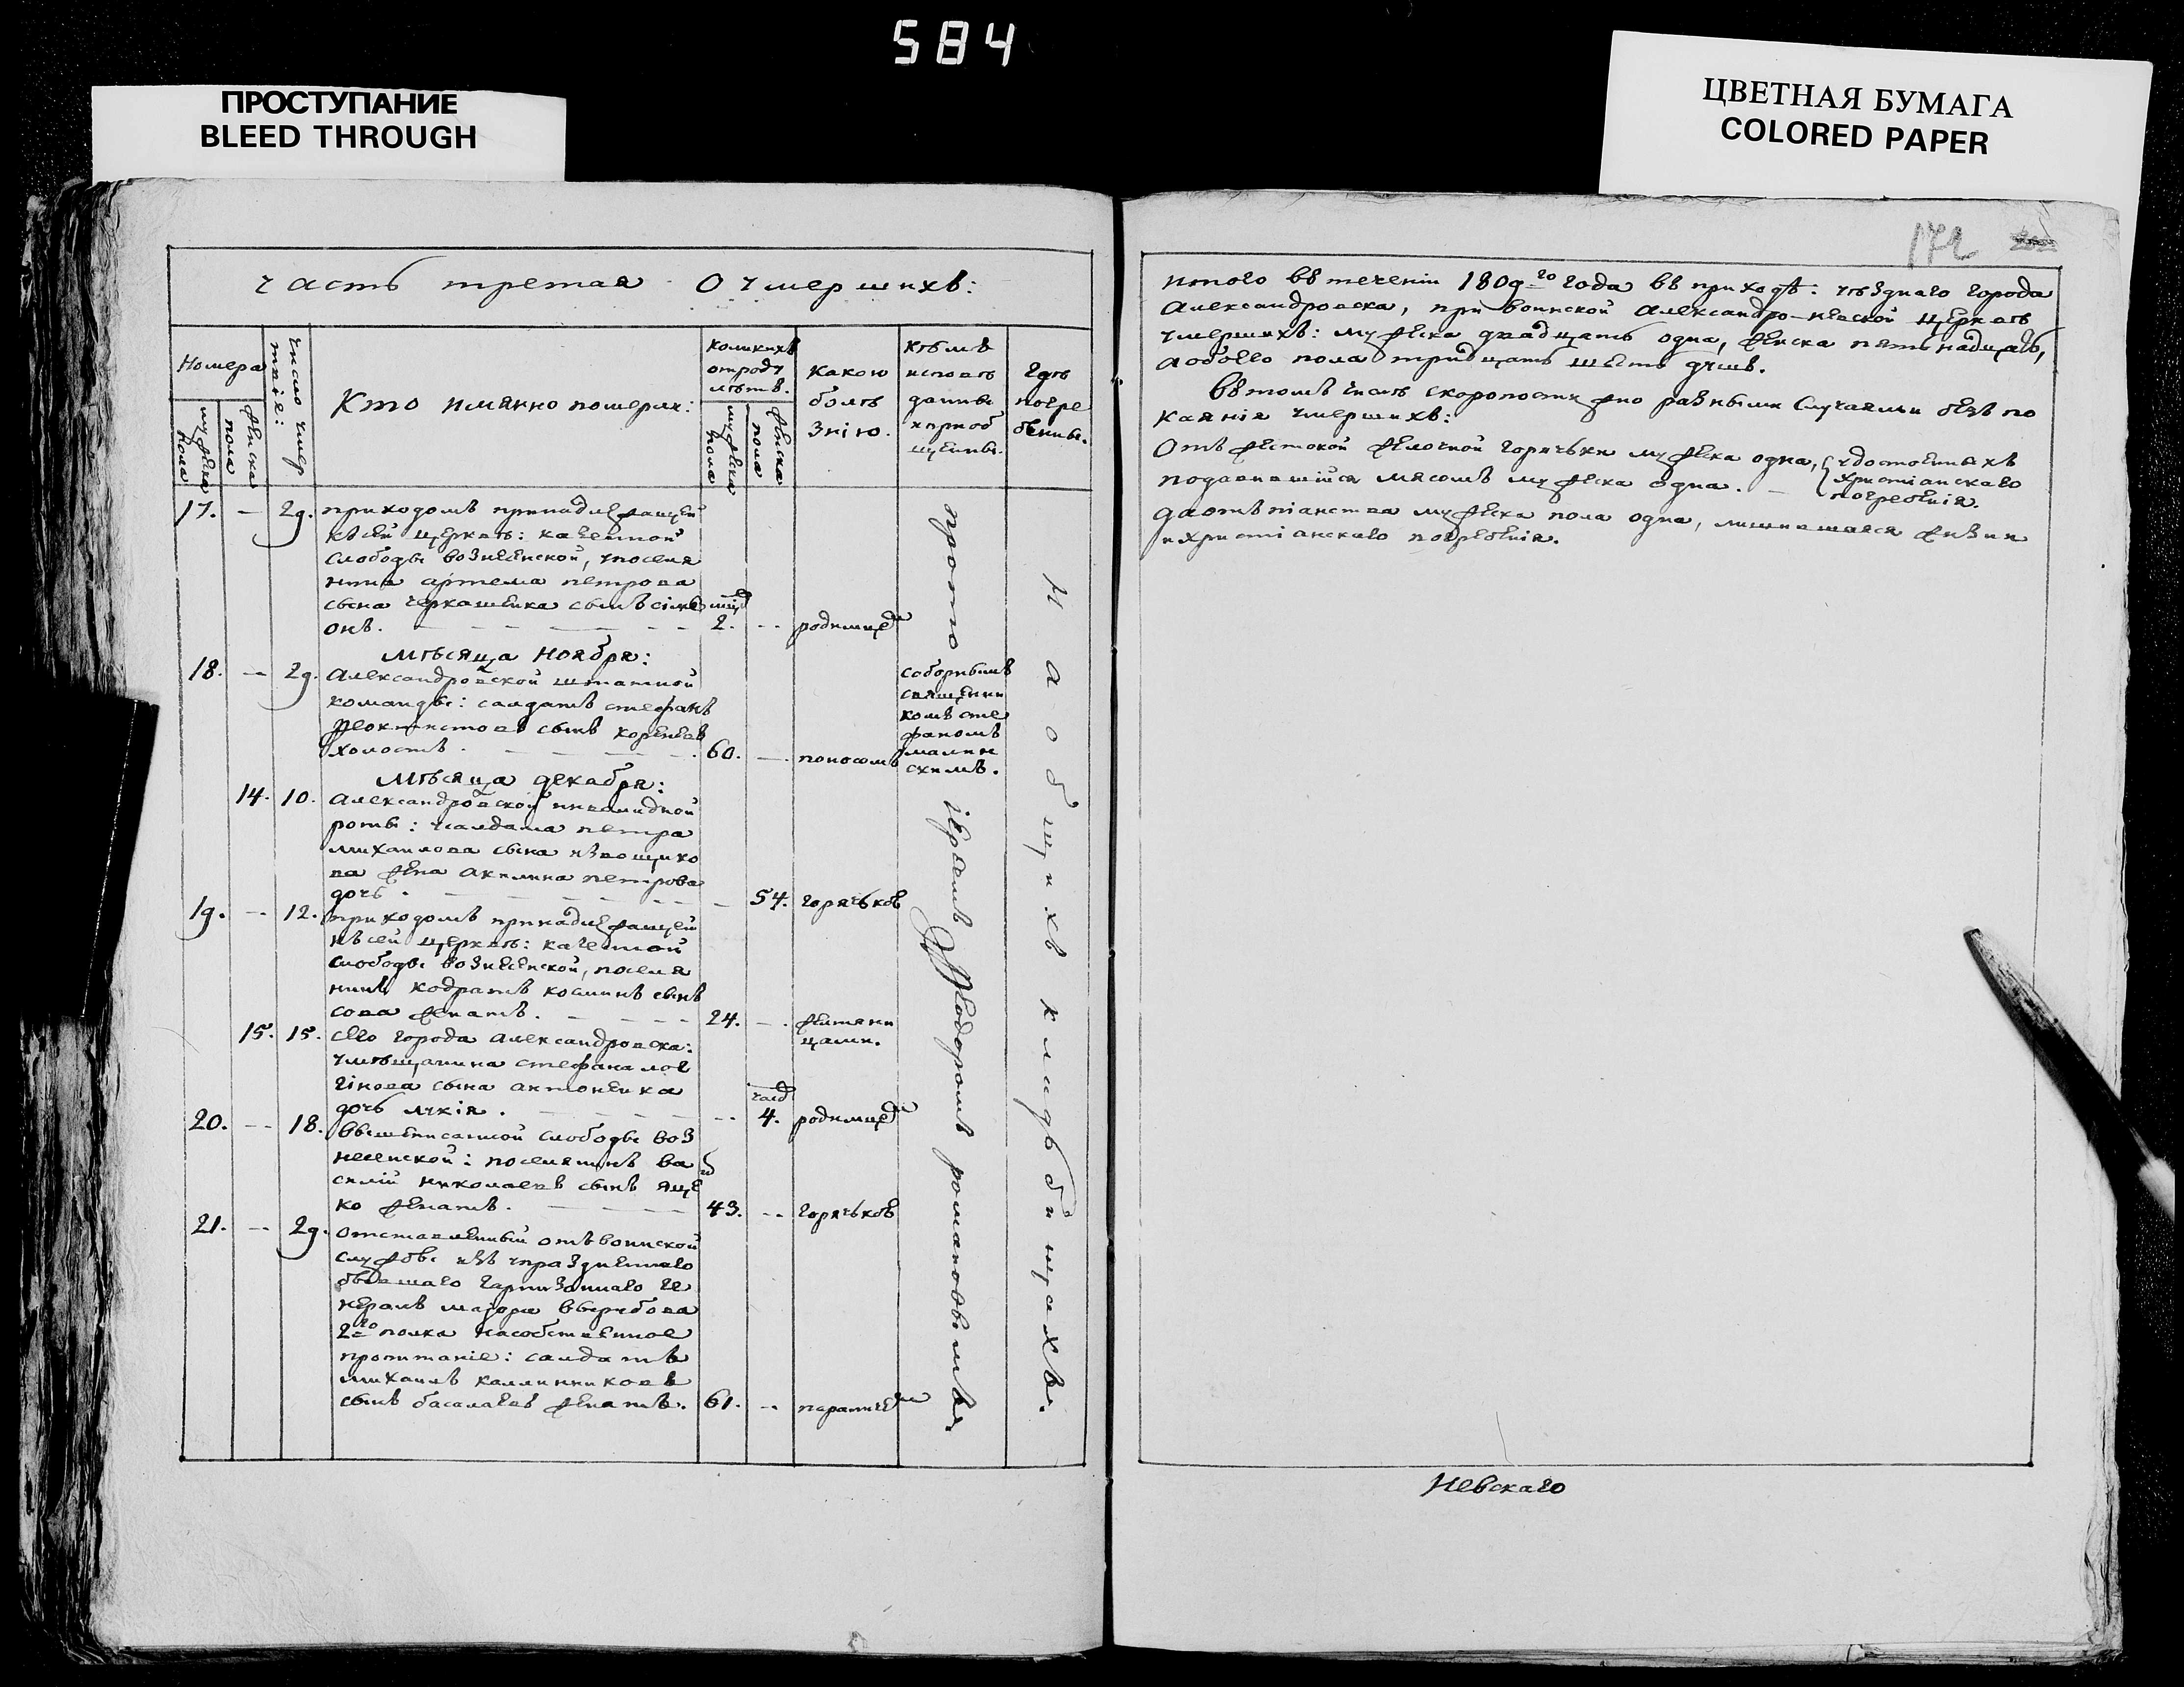 584
ПРОСТУПАНИЕ
BLEED THROUGH
ЦВЕТНАЯ БУМАГА
COLORED PAPER
172
часть третая О умершихъ:
Номера
мужеска пола
женска пола
число умер
твіе:
Кто имянно померли:
коликихъ
отроду
лѣтъ.
мужеска пола
женска пола
какою
болѣ
знію.
кѣмъ
исповѣ
даны
и приоб
щены.
Гдѣ
погре
бены.
17. — 29. приходомъ принадлежащей
къ сей церквѣ: казенной
слободы вознесенской, упоселя
нина артема петрова
сына черкашенка сынъ сіме
онъ. 2. -- родимцемъ
Мѣсяца Ноября:
18. — 29. Александровской штатной
команды: салдатъ стефанъ
феоктистовъ сынъ кореневъ
холостъ. 60. — поносомъ
соборнымъ
священни
комъ сте
фаномъ
малин
скимъ.
Мѣсяца декабря:
14. 10. Александровской инвалидной
роты: усалдата петра
михаилова сына извощико
ва жена акилина петрова
дочь. — 54. Горячькой
19. -- 12. приходомъ принадлежащей
къ сей церквѣ: казенной
слободы вознесенской, поселя
нинъ кодратъ косминъ сынъ
сова женатъ. 24. — желтяни
цами.
15. 15. сего города александровска:
умѣщанина стефана лог
гінова сына антоненка
дочь лукія. -- 4. родимцемъ
20. -- 18. вышеписанной слободы воз
несенской: поселянинъ ва
силій николаевъ сынъ яще
ко женатъ. 43. -- Горячькой
21. -- 29. отставленный отъ воинской
службы изъ упраздненнаго
бывшаго гарнизоннаго ге
нералъ маіора вырубова
2го полка насобственное
пропитаніе: салдатъ
михаилъ каллинниковъ
сынъ басалаевъ женатъ. 61. --
прото
іереемъ Феодоромъ романовымъ.
На общихъ кладбищахъ.
итого въ теченіи 1809го года въ приходѣ: уѣзднаго города
Александровска, при воинской александро-невской церквѣ
умершихъ: мужеска двадцать одна, женска пятьнадцать,
а обоего пола тридцать шесть душъ.
въ томъ числѣ скоропостижно разными случаями безъ по
каянія умершихъ:
Отъ жестокой желочной горячьки мужеска одна,
подавившійся мясомъ мужеска одна. —
удостоенныхъ
христіанскаго
погребенія.
да отъ піанства мужеска пола одна, лишившаяся жизни
и христіанскаго погребенія.
Невскаго